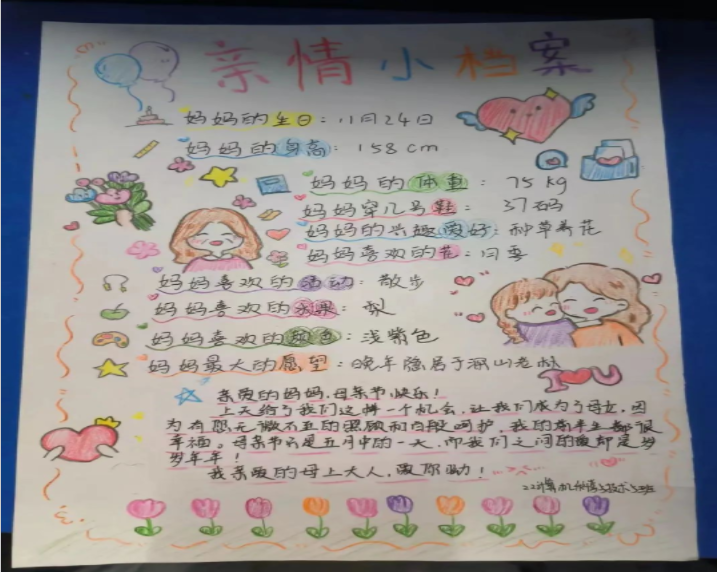 亲情小档案
妈妈的生日：11月24日
妈妈的身高：158cm
妈妈的体重：75kg
妈妈穿几号鞋：37码
妈妈的兴趣爱好：种草养花
妈妈喜欢的花：月季
妈妈喜欢的活动：散步
妈妈喜欢的水果：梨
妈妈喜欢的颜色：浅紫色
妈妈最大的愿望：晚年隐居于深山老林
I U
亲爱的妈妈，母亲节快乐！
上天给了我们这样一个机会，让我们成为了母女，因
为有您无微不至的照顾和百般呵护，我的前半生都很
幸福。母亲节只是五月中的一天，而我们之间的爱却是岁
岁年年！
我亲爱的母上大人，爱你呦！
22计算机 技术 班